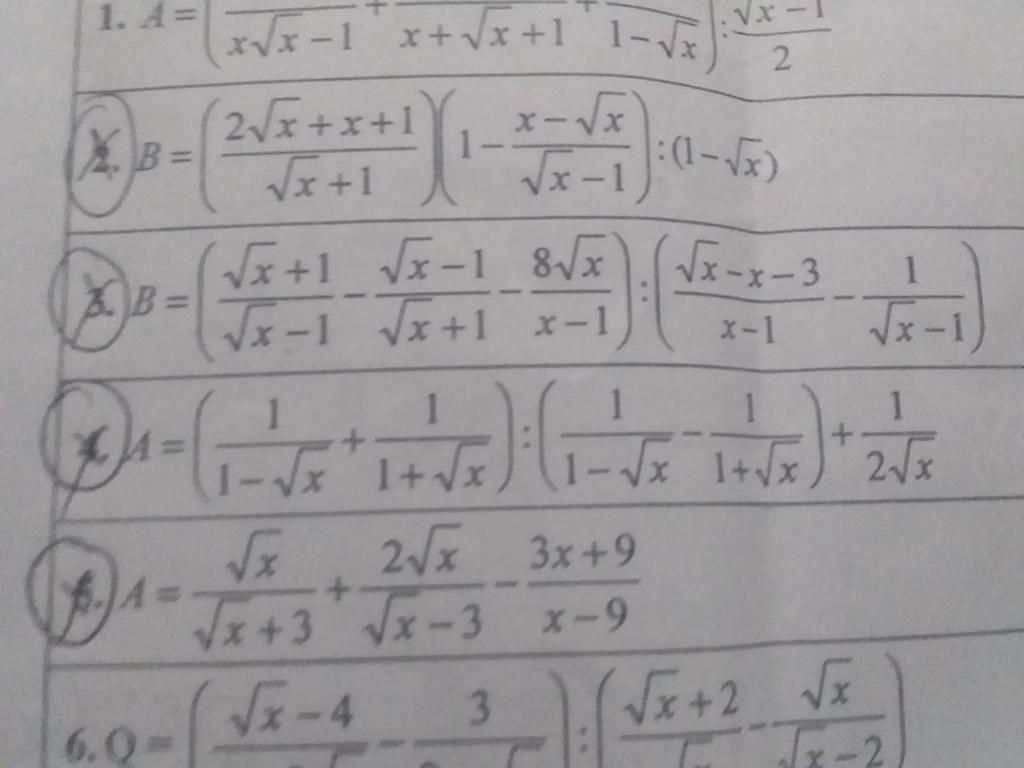 1. A = ( / x√x − 1 + / x + √x + 1 + / 1 − √x ) : (√x − 1)/2
2. B = ( (2√x + x + 1)/(√x + 1) )( 1 − (x − √x)/(√x − 1) ) : (1 − √x)
3. B = ( (√x + 1)/(√x − 1) − (√x − 1)/(√x + 1) − 8√x/(x − 1) ) : ( (√x − x − 3)/(x − 1) − 1/(√x − 1) )
4. A = ( 1/(1 − √x) + 1/(1 + √x) ) : ( 1/(1 − √x) − 1/(1 + √x) ) + 1/(2√x)
5. A = √x/(√x + 3) + 2√x/(√x − 3) − (3x + 9)/(x − 9)
6. Q = ( (√x − 4)/ − 3/ ) : ( (√x + 2)/√x − √x/(√x − 2) )